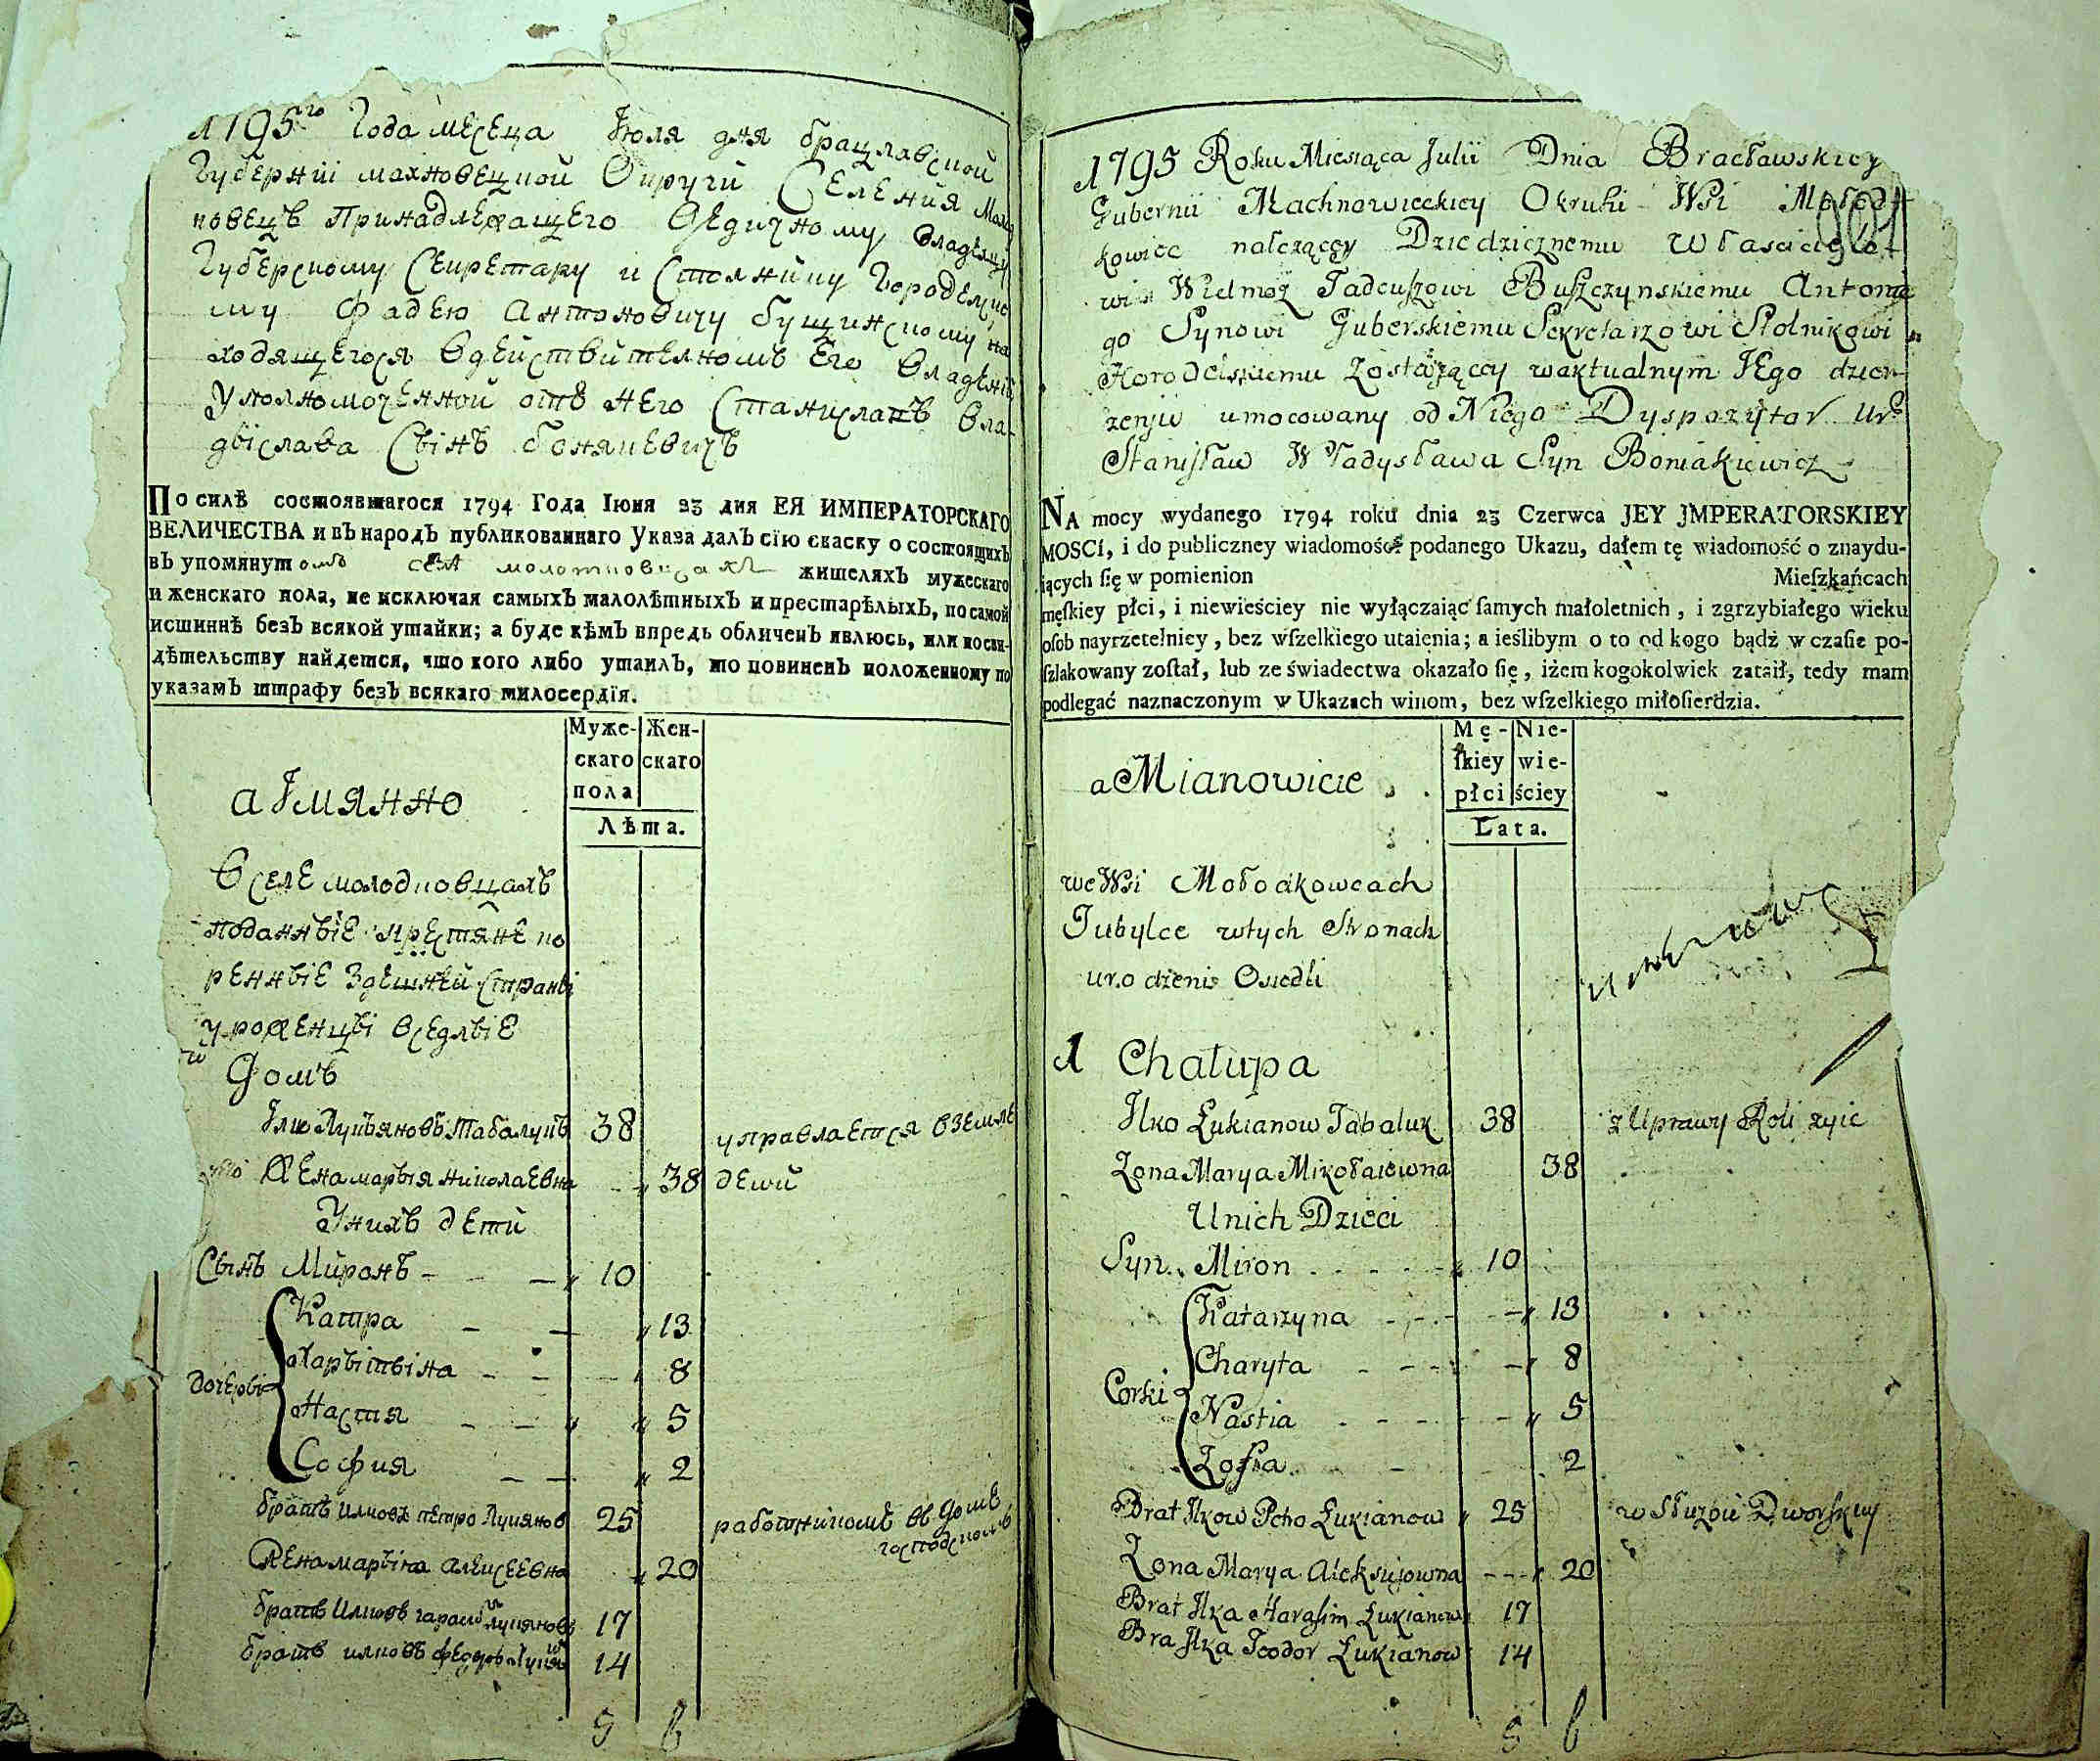 1795го Года месеца Июля дня брацлавской
Губернии махновецкой Округи Селения Молод
ковецъ Принадлежащего Ведичному владелцу
Губерскому Секретару и Столнику Городелско
му Фадею Антоновичу бущинскому на
ходящегося вдействителномъ Его владении
Уполномоченной отъ него Станиславъ Вла
диславa Синъ бонякевичъ
По силѣ состоявшагося 1794 Года Іюня 23 дня ЕЯ ИМПЕРАТОРСКАГО
ВЕЛИЧЕСТВА и въ народъ публикованнаго Указа далъ сію скаску о состоящихъ
въ упомянутомъ селѣ молотковцахъ жителяхъ мужескаго
и женскаго пола, не исключая самыхъ малолѣтныхъ и престарѣлыхъ, по самой
исшиннѣ безъ всякой утайки; а буде кѣмъ впредь обличенъ явлюсь, или посви-
дѣтельству найдется, что кого либо утаилъ, то повиненъ положенному по
указамъ штрафу безъ всякаго милосердія.
а Имянно
Муже-
скаго
пола
Жен-
скаго
Лѣта.
Вселе молодковцахъ
поданные крестяне ко
ренные здешней страны
уроженцы вседлые
1й Домъ
Илко Лукьяновъ Табалукъ 38 управлается вземле
его Жена марыя николаевна 38 делй
Унихъ дети
Сынъ Миронъ 10
Дочеры
Катра 13
Харытына 8
Настя 5
София 2
братъ илковъ петро Лукянов 25 работникомъ въ доме
господскомъ
Жена марына алексеевна 20
братъ Илковъ гарасимъ Лукяновъ 17
братъ илковъ федоръ Лукяновъ 14
5 6
1795 Roku Miesiąca Julii Dnia Bracławskiey
Gubernii Machnowieckiey Okruhi Wsi Mołod
kowiec nałezącey Dziedzicznemu Właścicielo
wi Wielmoż Tadeuszowi Buszczynskiemu Antonie
go Synowi Guberskiemu Sekretarzowi Stolnikowi
Horodelskiemu Zostaiącey waktualnym JEgo dzier
zeniu umocowany od Niego Dyspozytor Ur
Stanisław Władysława Syn Boniakiewicz
NA mocy wydanego 1794 roku dnia 23 Czerwca JEY JMPERATORSKIEY
MOSCI, i do publiczney wiadomości podanego Ukazu, dałem tę wiadomość o znaydu-
iących się w pomienion Mieſzkańcach
męſkiey płci, i niewieściey nie wyłączaiąc ſamych małoletnich, i zgrzybiałego wieku
oſob nayrzetelniey, bez wſzelkiego utaienia; a ieślibym o to od kogo bądź w czaſie po-
ſzlakowany zoſtał, lub ze świadectwa okazało ſię, iżem kogokolwiek zataił, tedy mam
podlegać naznaczonym w Ukazach winom, bez wſzelkiego miłoſierdzia.
a Mianowicie
Mę-
ſkiey
płci
Nie-
wie-
ściey
Lata.
we Wsi Mołodkowcach
Tubylce wtych Stronach
urodzenie Osiedli
1 Chałupa
Ilko Łukianow Tabaluk 38 z Uprawy Roli zyie
Zona Marya Mikołaiewna 38
Unich Dzieci
Syn Miron 10
Corki
Katarzyna 13
Charyta 8
Nastia 5
Zofia 2
Brat Ilkow Petro Łukianow 25 w Służbie Dworskiey
Zona Marya Aleksiejowna 20
Brat Ilka Harasim Łukianow 17
Bra Ilka Teodor Łukianow 14
5 6